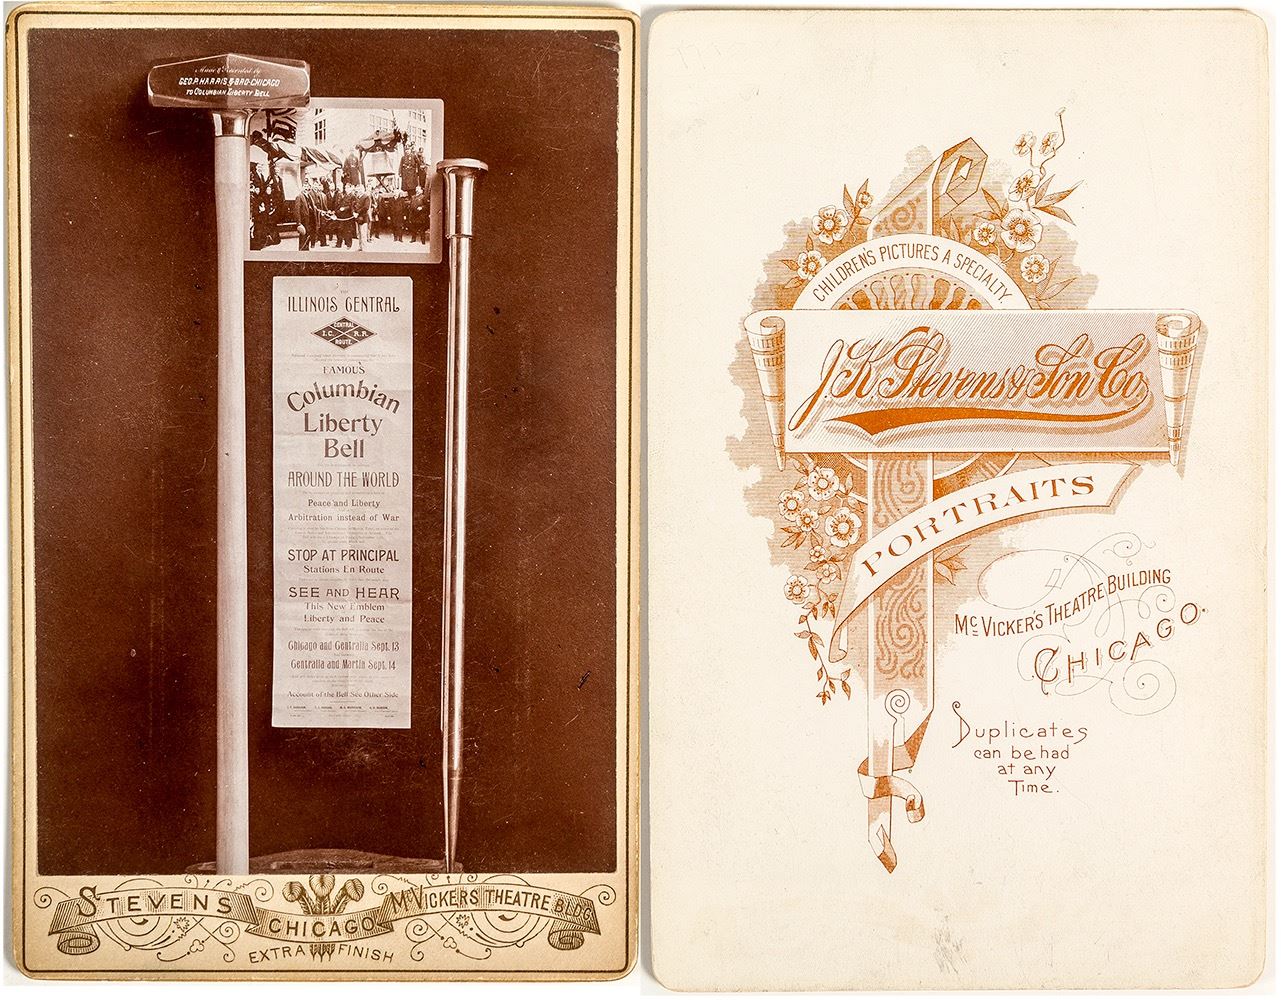 Made & Presented by
GEO. P. HARRIS & BRO. CHICAGO
TO COLUMBIAN LIBERTY BELL
ILLINOIS CENTRAL
CENTRAL
I.C. R.R.
ROUTE
FAMOUS
Columbian
Liberty
Bell
AROUND THE WORLD
Peace and Liberty
Arbitration instead of War
STOP AT PRINCIPAL
Stations En Route
SEE AND HEAR
This New Emblem
Liberty and Peace
Chicago and Centralia Sept. 13
Centralia and Martin Sept. 14
Account of the Bell See Other Side
STEVENS
CHICAGO
McVICKERS THEATRE BLDG.
EXTRA FINISH
CHILDREN'S PICTURES A SPECIALTY.
J.K. Stevens & Son Co.
PORTRAITS
McVICKER'S THEATRE BUILDING
CHICAGO.
Duplicates
can be had
at any
Time.